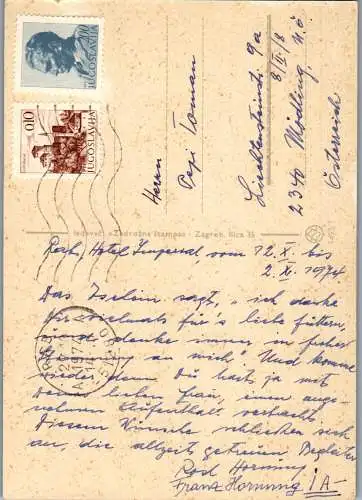 JUGOSLAVIJA
0,10
JUGOSLAVIJA
Herrn
Pepi Toman
Liechtensteinstr. 9a
8/III/8
2340 Mödling, N.Ö.
Österreich
Izdavač: »Zadružna štampa« - Zagreb, Ilica 35
Hotel Imperial vom 12. X. bis
2. XI. 1974
Das sagt, "ich danke
vielmals für's liebe füttern,
und denke immer in froher
an mich" Und komme
wieder denn Du hast ja mit
Deiner lieben Frau, einen ange-
nehmen Aufenthalt verbracht.
Diesem Wunsche schließen sich
an, die allzeit getreuen Begleiter
Hornung
Franz Hornung